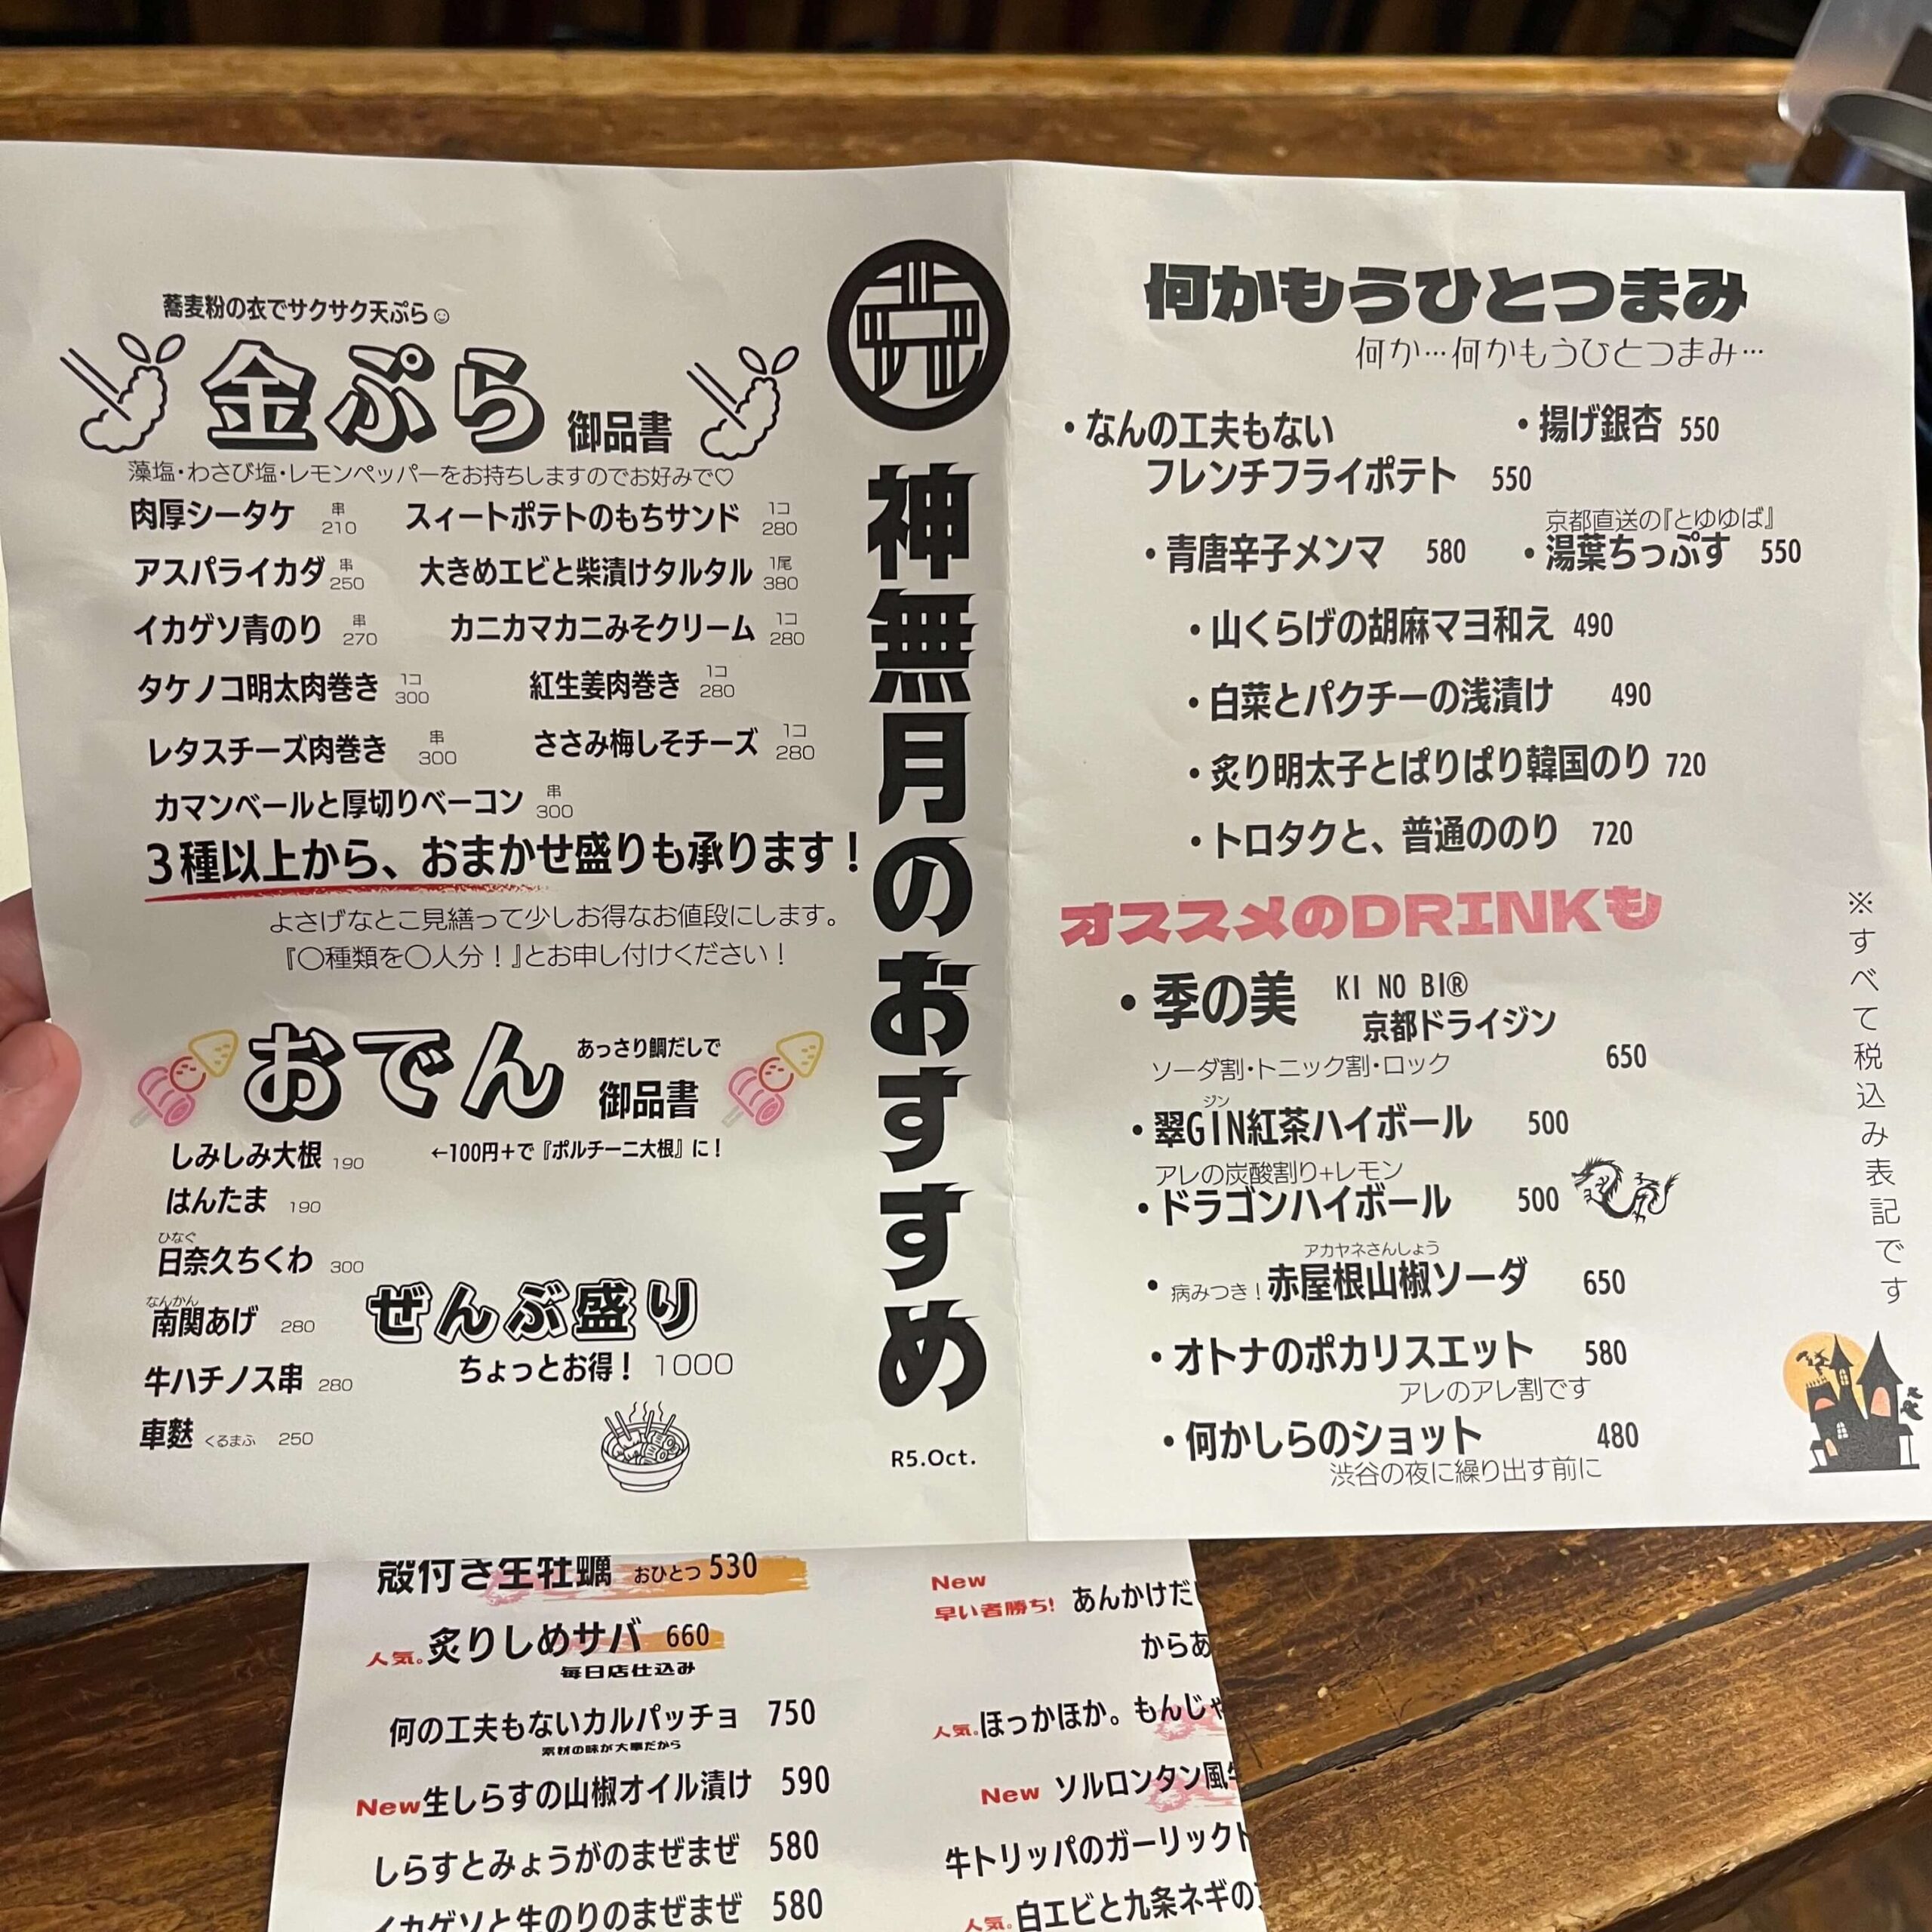 蕎麦粉の衣でサクサク天ぷら☺
金ぷら 御品書
藻塩・わさび塩・レモンペッパーをお持ちしますのでお好みで♡
肉厚シータケ 串 210
スィートポテトのもちサンド 1コ 280
アスパライカダ 串 250
大きめエビと柴漬けタルタル 1尾 380
イカゲソ青のり 串 270
カニカマカニみそクリーム 1コ 280
タケノコ明太肉巻き 1コ 300
紅生姜肉巻き 1コ 280
レタスチーズ肉巻き 串 300
ささみ梅しそチーズ 1コ 280
カマンベールと厚切りベーコン 串 300
3種以上から、おまかせ盛りも承ります!
よさげなとこ見繕って少しお得なお値段にします。
『〇種類を〇人分!』とお申し付けください!
おでん あっさり鯛だしで 御品書
しみしみ大根 190 ←100円+で『ポルチーニ大根』に!
はんたま 190
ひなぐ
日奈久ちくわ 300
なんかん
南関あげ 280
牛ハチノス串 280
車麩 くるまふ 250
ぜんぶ盛り
ちょっとお得! 1000
神無月のおすすめ
R5.Oct.
何かもうひとつまみ
何か…何かもうひとつまみ…
・なんの工夫もない
フレンチフライポテト 550
・揚げ銀杏 550
・青唐辛子メンマ 580
京都直送の『とゆゆば』
・湯葉ちっぷす 550
・山くらげの胡麻マヨ和え 490
・白菜とパクチーの浅漬け 490
・炙り明太子とぱりぱり韓国のり 720
・トロタクと、普通ののり 720
オススメのDRINKも
・季の美 KI NO BI®
京都ドライジン
ソーダ割・トニック割・ロック 650
ジン
・翠GIN紅茶ハイボール 500
アレの炭酸割り+レモン
・ドラゴンハイボール 500
アカヤネさんしょう
・病みつき!赤屋根山椒ソーダ 650
・オトナのポカリスエット 580
アレのアレ割です
・何かしらのショット 480
渋谷の夜に繰り出す前に
※すべて税込み表記です
殻付き生牡蠣 おひとつ 530
人気。炙りしめサバ 660
毎日店仕込み
何の工夫もないカルパッチョ 750
素材の味が大事だから
New生しらすの山椒オイル漬け 590
しらすとみょうがのまぜまぜ 580
イカゲソと生のりのまぜまぜ 580
New
早い者勝ち! あんかけだ
からあ
人気。ほっかほか。もんじゃ
New ソルロンタン風
牛トリッパのガーリック
人気。白エビと九条ネギの